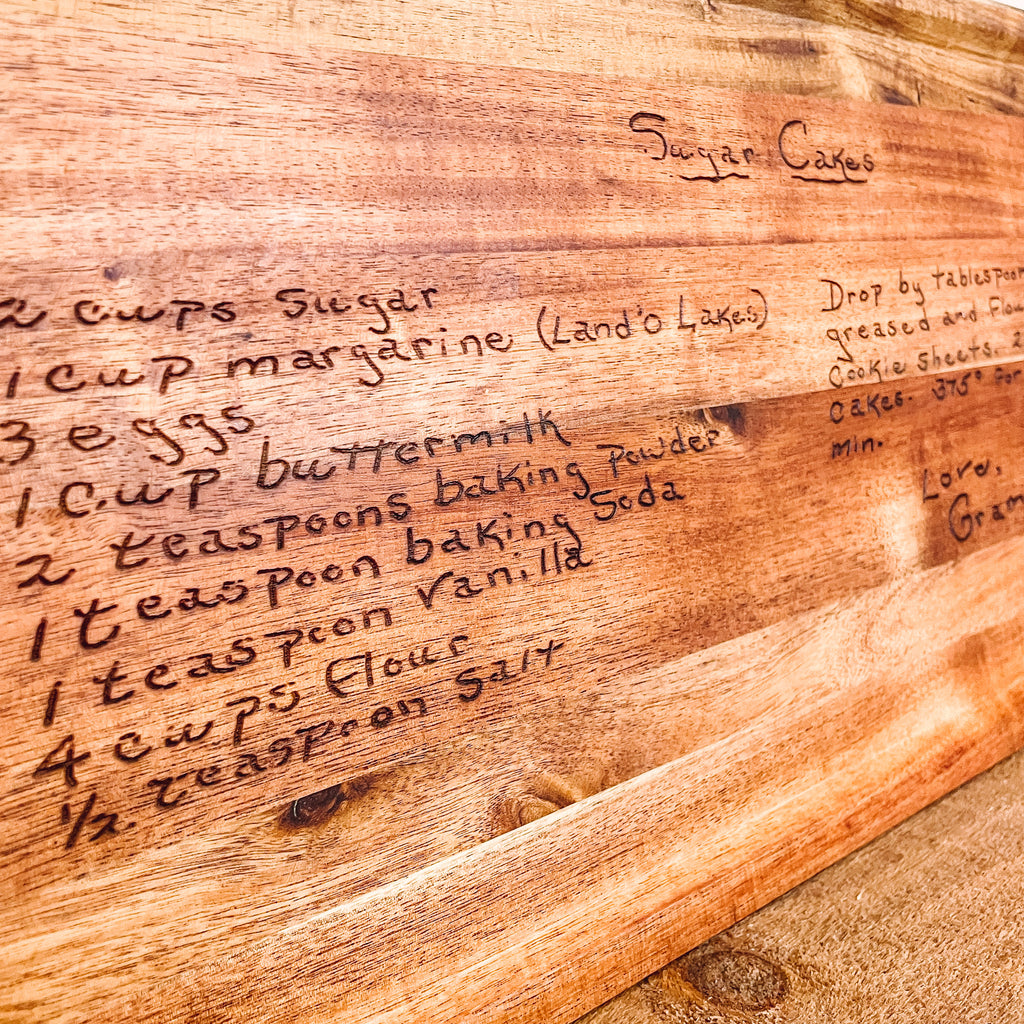 Sugar Cakes
2 cups sugar
1 cup margarine (Land'o Lakes)
3 eggs
1 cup buttermilk
2 teaspoons baking powder
1 teaspoon baking soda
1 teaspoon vanilla
4 cups flour
1/2 teaspoon salt
Drop by tablespoon
greased and flou
cookie sheets. 2
cakes. 375° for
min.
Love,
Gram